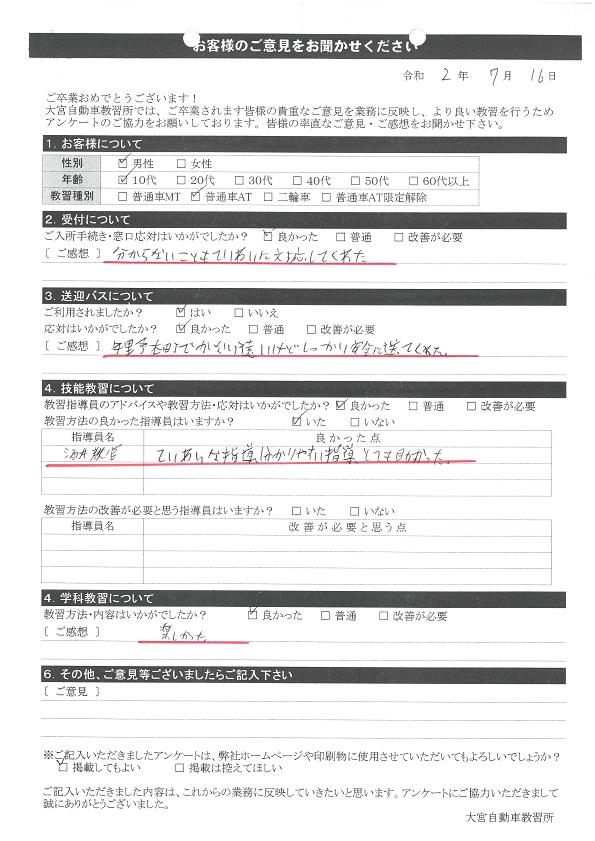 お客様のご意見をお聞かせください
令和 2 年 7 月 16 日
ご卒業おめでとうございます！
大宮自動車教習所では、ご卒業されます皆様の貴重なご意見を業務に反映し、より良い教習を行うため
アンケートのご協力をお願いしております。皆様の率直なご意見・ご感想をお聞かせ下さい。
1. お客様について
性別 ☑男性 □女性
年齢 ☑10代 □20代 □30代 □40代 □50代 □60代以上
教習種別 □普通車MT ☑普通車AT □二輪車 □普通車AT限定解除
2. 受付について
ご入所手続き・窓口応対はいかがでしたか？ ☑良かった □普通 □改善が必要
［ ご感想 ］ 分からないこともていねいに対応してくれた
3. 送迎バスについて
ご利用されましたか？ ☑はい □いいえ
応対はいかがでしたか？ ☑良かった □普通 □改善が必要
［ ご感想 ］ しっかり安全に送ってくれた。
4. 技能教習について
教習指導員のアドバイスや教習方法・応対はいかがでしたか？ ☑良かった □普通 □改善が必要
教習方法の良かった指導員はいますか？ ☑いた □いない
指導員名 良かった点
教官 ていねいな指導分かりやすい指導とても良かった。
教習方法の改善が必要と思う指導員はいますか？ □いた □いない
指導員名 改善が必要と思う点
4. 学科教習について
教習方法・内容はいかがでしたか？ ☑良かった □普通 □改善が必要
［ ご感想 ］ 楽しかった
6. その他、ご意見等ございましたらご記入下さい
［ ご意見 ］
※ご記入いただきましたアンケートは、弊社ホームページや印刷物に使用させていただいてもよろしいでしょうか？
☑掲載してもよい □掲載は控えてほしい
ご記入いただきました内容は、これからの業務に反映していきたいと思います。アンケートにご協力いただきまして
誠にありがとうございました。
大宮自動車教習所